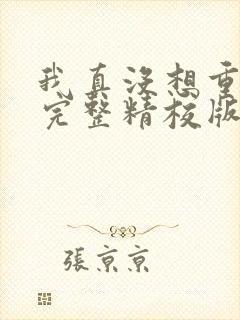 我真没想重
完整精校版
張京京